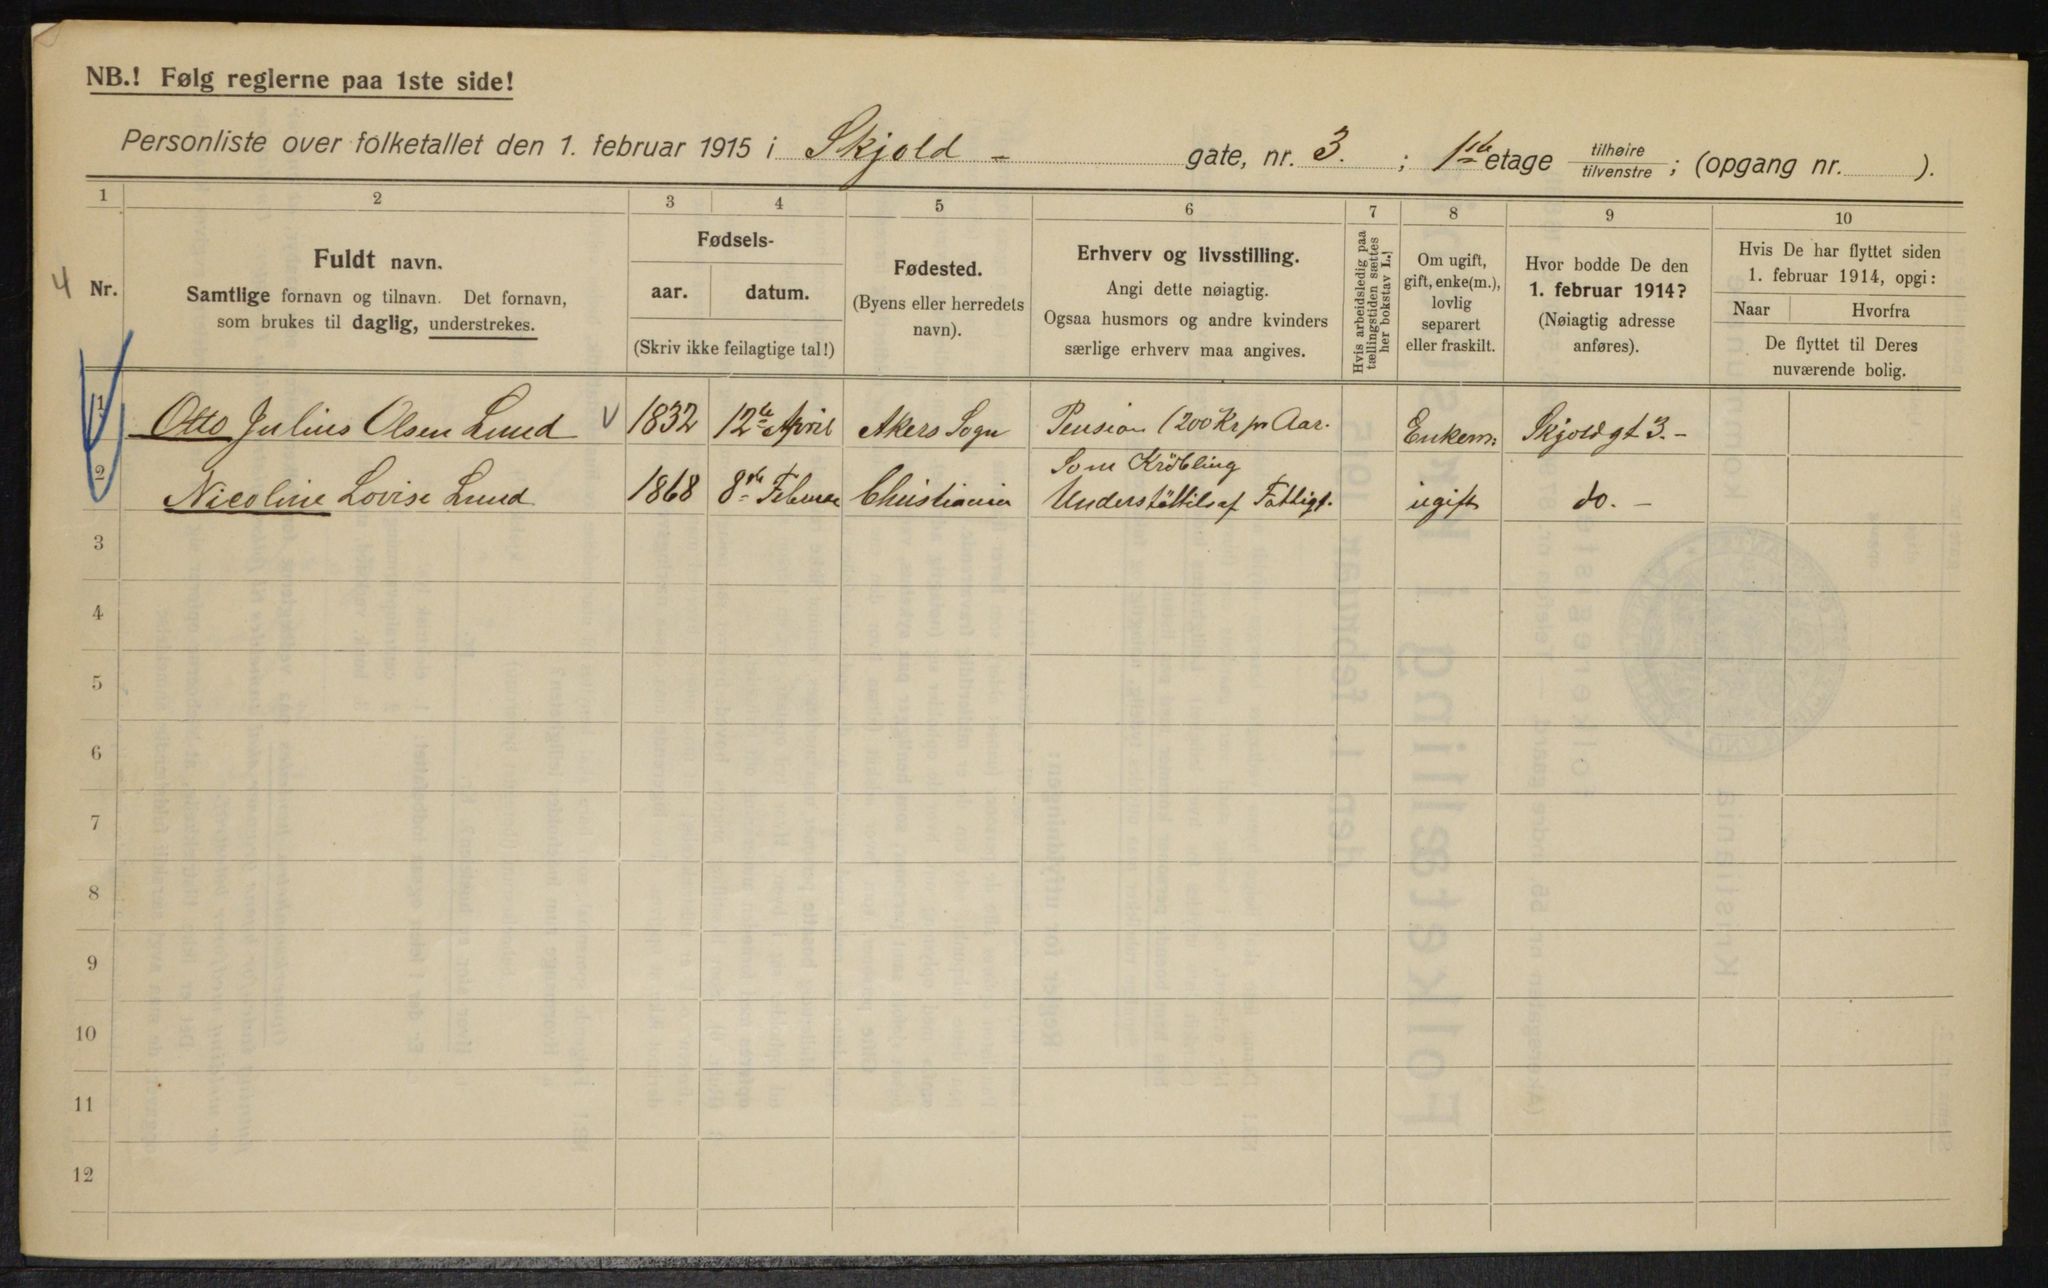 NB.! Følg reglerne paa 1ste side!
Personliste over folketallet den 1. februar 1915 i Skjold - gate, nr. 3. ; 1ste etage tilhøire/tilvenstre ; (opgang nr. ).
1 2 3 4 5 6 7 8 9 10
4
Nr.
Fuldt navn.
Samtlige fornavn og tilnavn. Det fornavn,
som brukes til daglig, understrekes.
Fødsels-
aar. datum.
(Skriv ikke feilagtige tal!)
Fødested.
(Byens eller herredets
navn).
Erhverv og livsstilling.
Angi dette nøiagtig.
Ogsaa husmors og andre kvinders
særlige erhverv maa angives.
Hvis arbeidsledig paa
tællingstiden sættes
her bokstav L.
Om ugift,
gift, enke(m.),
lovlig
separert
eller fraskilt.
Hvor bodde De den
1. februar 1914?
(Nøiagtig adresse
anføres).
Hvis De har flyttet siden
1. februar 1914, opgi:
Naar Hvorfra
De flyttet til Deres
nuværende bolig.
1 Otto Julius Olsen Lund 1832 12te April Akers Sogn Pension 1200 Kr pr Aar. Enkem: Skjoldgt 3.-
Som Kröbling
2 Nicoline Lovise Lund 1868 8de Februar Christiania Understöttils af Fattigt. ugift do. -
3
4
5
6
7
8
9
10
11
12